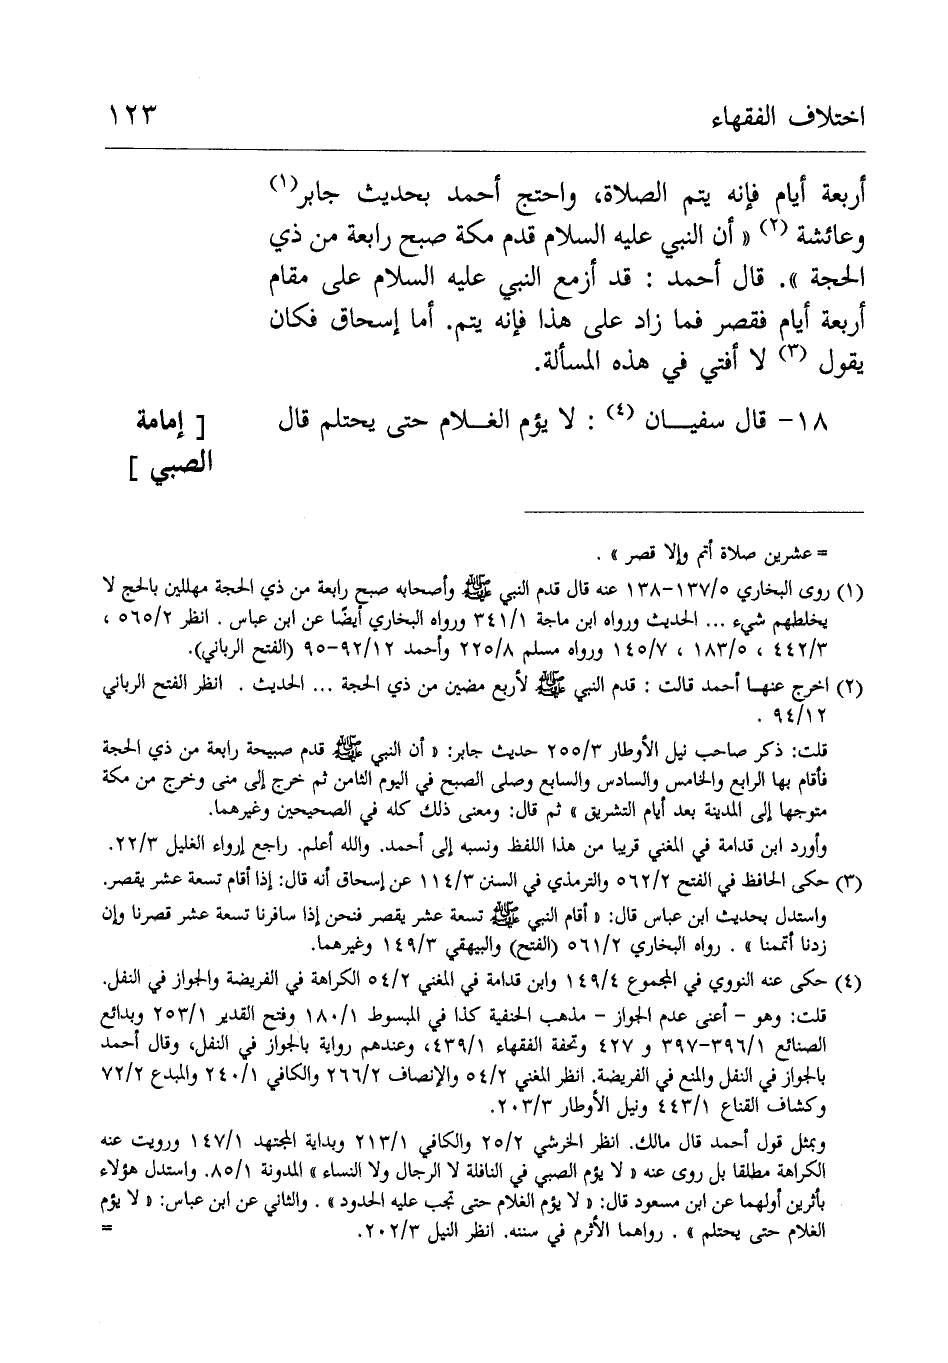 اختلاف الفقهاء
١٢٣
أربعة أيام فإنه يتم الصلاة، واحتج أحمد بحديث جابر(١)
وعائشة (٢) « أن النبي عليه السلام قدم مكة صبح رابعة من ذي
الحجة ». قال أحمد : قد أزمع النبي عليه السلام على مقام
أربعة أيام فقصر فما زاد على هذا فإنه يتم. أما إسحاق فكان
يقول (٣) لا أفتي في هذه المسألة.
١٨- قال سفيـــان (٤) : لا يؤم الغـــلام حتى يحتلم قال
[ إمامة
الصبي ]
= عشرين صلاة أتم وإلا قصر » .
(١) روى البخاري ١٣٧/٥-١٣٨ عنه قال قدم النبي ﷺ وأصحابه صبح رابعة من ذي الحجة مهللين بالحج لا
يخلطهم شيء ... الحديث ورواه ابن ماجة ٣٤١/١ ورواه البخاري أيضًا عن ابن عباس . انظر ٥٦٥/٢ ،
٤٤٢/٣ ، ١٨٣/٥ ، ١٤٥/٧ ورواه مسلم ٢٢٥/٨ وأحمد ٩٢/١٢-٩٥ (الفتح الرباني).
(٢) اخرج عنهـا أحمد قالت : قدم النبي ﷺ لأربع مضين من ذي الحجة ... الحديث . انظر الفتح الرباني
٩٤/١٢ .
قلت: ذكر صاحب نيل الأوطار ٢٥٥/٣ حديث جابر: « أن النبي ﷺ قدم صبيحة رابعة من ذي الحجة
فأقام بها الرابع والخامس والسادس والسابع وصلى الصبح في اليوم الثامن ثم خرج إلى منى وخرج من مكة
متوجها إلى المدينة بعد أيام التشريق » ثم قال: ومعنى ذلك كله في الصحيحين وغيرهما.
وأورد ابن قدامة في المغني قريبا من هذا اللفظ ونسبه إلى أحمد. والله أعلم. راجع إرواء الغليل ٢٢/٣.
(٣) حكى الحافظ في الفتح ٥٦٢/٢ والترمذي في السنن ١١٤/٣ عن إسحاق أنه قال: إذا أقام تسعة عشر يقصر.
واستدل بحديث ابن عباس قال: « أقام النبي ﷺ تسعة عشر يقصر فنحن إذا سافرنا تسعة عشر قصرنا وإن
زدنا أتممنا » . رواه البخاري ٥٦١/٢ (الفتح) والبيهقي ١٤٩/٣ وغيرهما.
(٤) حكى عنه النووي في المجموع ١٤٩/٤ وابن قدامة في المغني ٥٤/٢ الكراهة في الفريضة والجواز في النفل.
قلت: وهو - أعنى عدم الجواز - مذهب الحنفية كذا في المبسوط ١٨٠/١ وفتح القدير ٢٥٣/١ وبدائع
الصنائع ٣٩٦/١-٣٩٧ و ٤٢٧ وتحفة الفقهاء ٤٣٩/١، وعندهم رواية بالجواز في النفل، وقال أحمد
بالجواز في النفل والمنع في الفريضة. انظر المغني ٥٤/٢ والإنصاف ٢٦٦/٢ والكافي ٢٤٠/١ والمبدع ٧٢/٢
وكشاف القناع ٤٤٣/١ ونيل الأوطار ٢٠٣/٣.
وبمثل قول أحمد قال مالك. انظر الخرشي ٢٥/٢ والكافي ٢١٣/١ وبداية المجتهد ١٤٧/١ ورويت عنه
الكراهة مطلقا بل روى عنه « لا يؤم الصبي في النافلة لا الرجال ولا النساء » المدونة ٨٥/١. واستدل هؤلاء
بأثرين أولهما عن ابن مسعود قال: « لا يؤم الغلام حتى تجب عليه الحدود » . والثاني عن ابن عباس: « لا يؤم
الغلام حتى يحتلم » . رواهما الأثرم في سننه. انظر النيل ٢٠٢/٣.
=